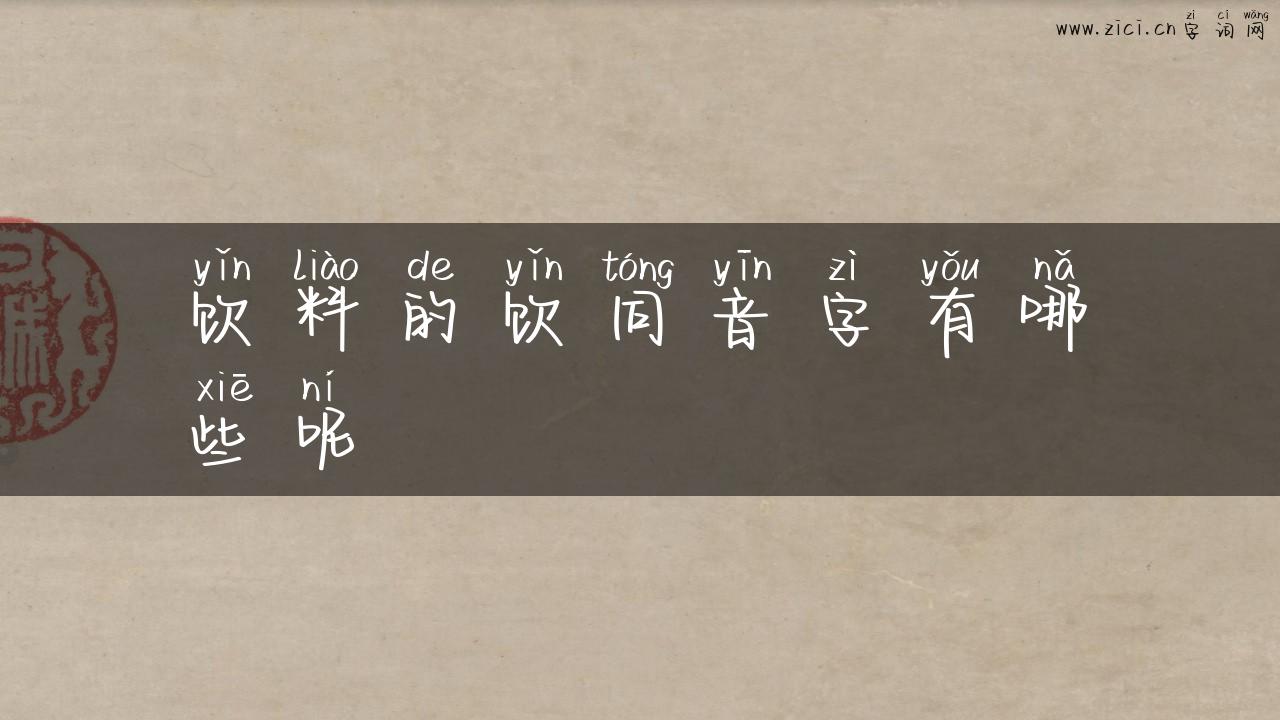 zì cí wǎng
www.zici.cn字词网
yǐn liào de yǐn tóng yīn zì yǒu nǎ
饮料的饮同音字有哪
xiē ní
些呢